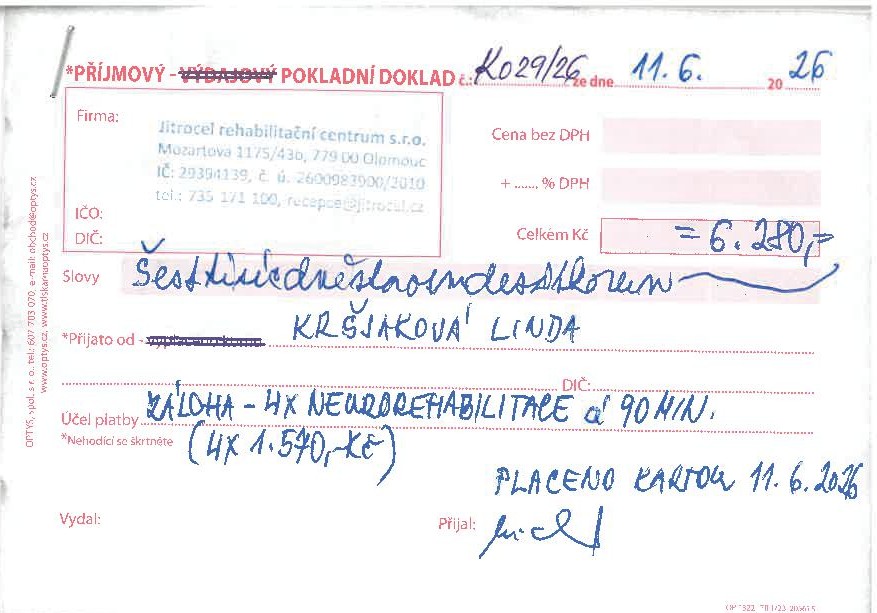 *PŘÍJMOVÝ - VÝDAJOVÝ POKLADNÍ DOKLAD č.: K029/26 ze dne 11.6. 20 26
Firma:
Jitrocel rehabilitační centrum s.r.o.
Mozartova 1175/43b, 779 00 Olomouc
IČ: 29394139, č. ú. 2600983900/2010
tel.: 735 171 100, recepce@jitrocel.cz
IČO:
DIČ:
Cena bez DPH
+ ...... % DPH
Celkem Kč =6.280,=
Slovy Šesttisícdvěstaosmdesátkorun
*Přijato od - KRŠJAKOVÁ LINDA
DIČ:
Účel platby ZÁLOHA - 4X NEUROREHABILITACE á 90 MIN.
*Nehodící se škrtněte (4X 1.570,-Kč)
PLACENO KARTOU 11.6.2026
Vydal:
Přijal:
OPTYS, spol. s r. o. tel.: 607 703 070, e-mail: obchod@optys.cz
www.optys.cz, www.tiskarnuoptys.cz